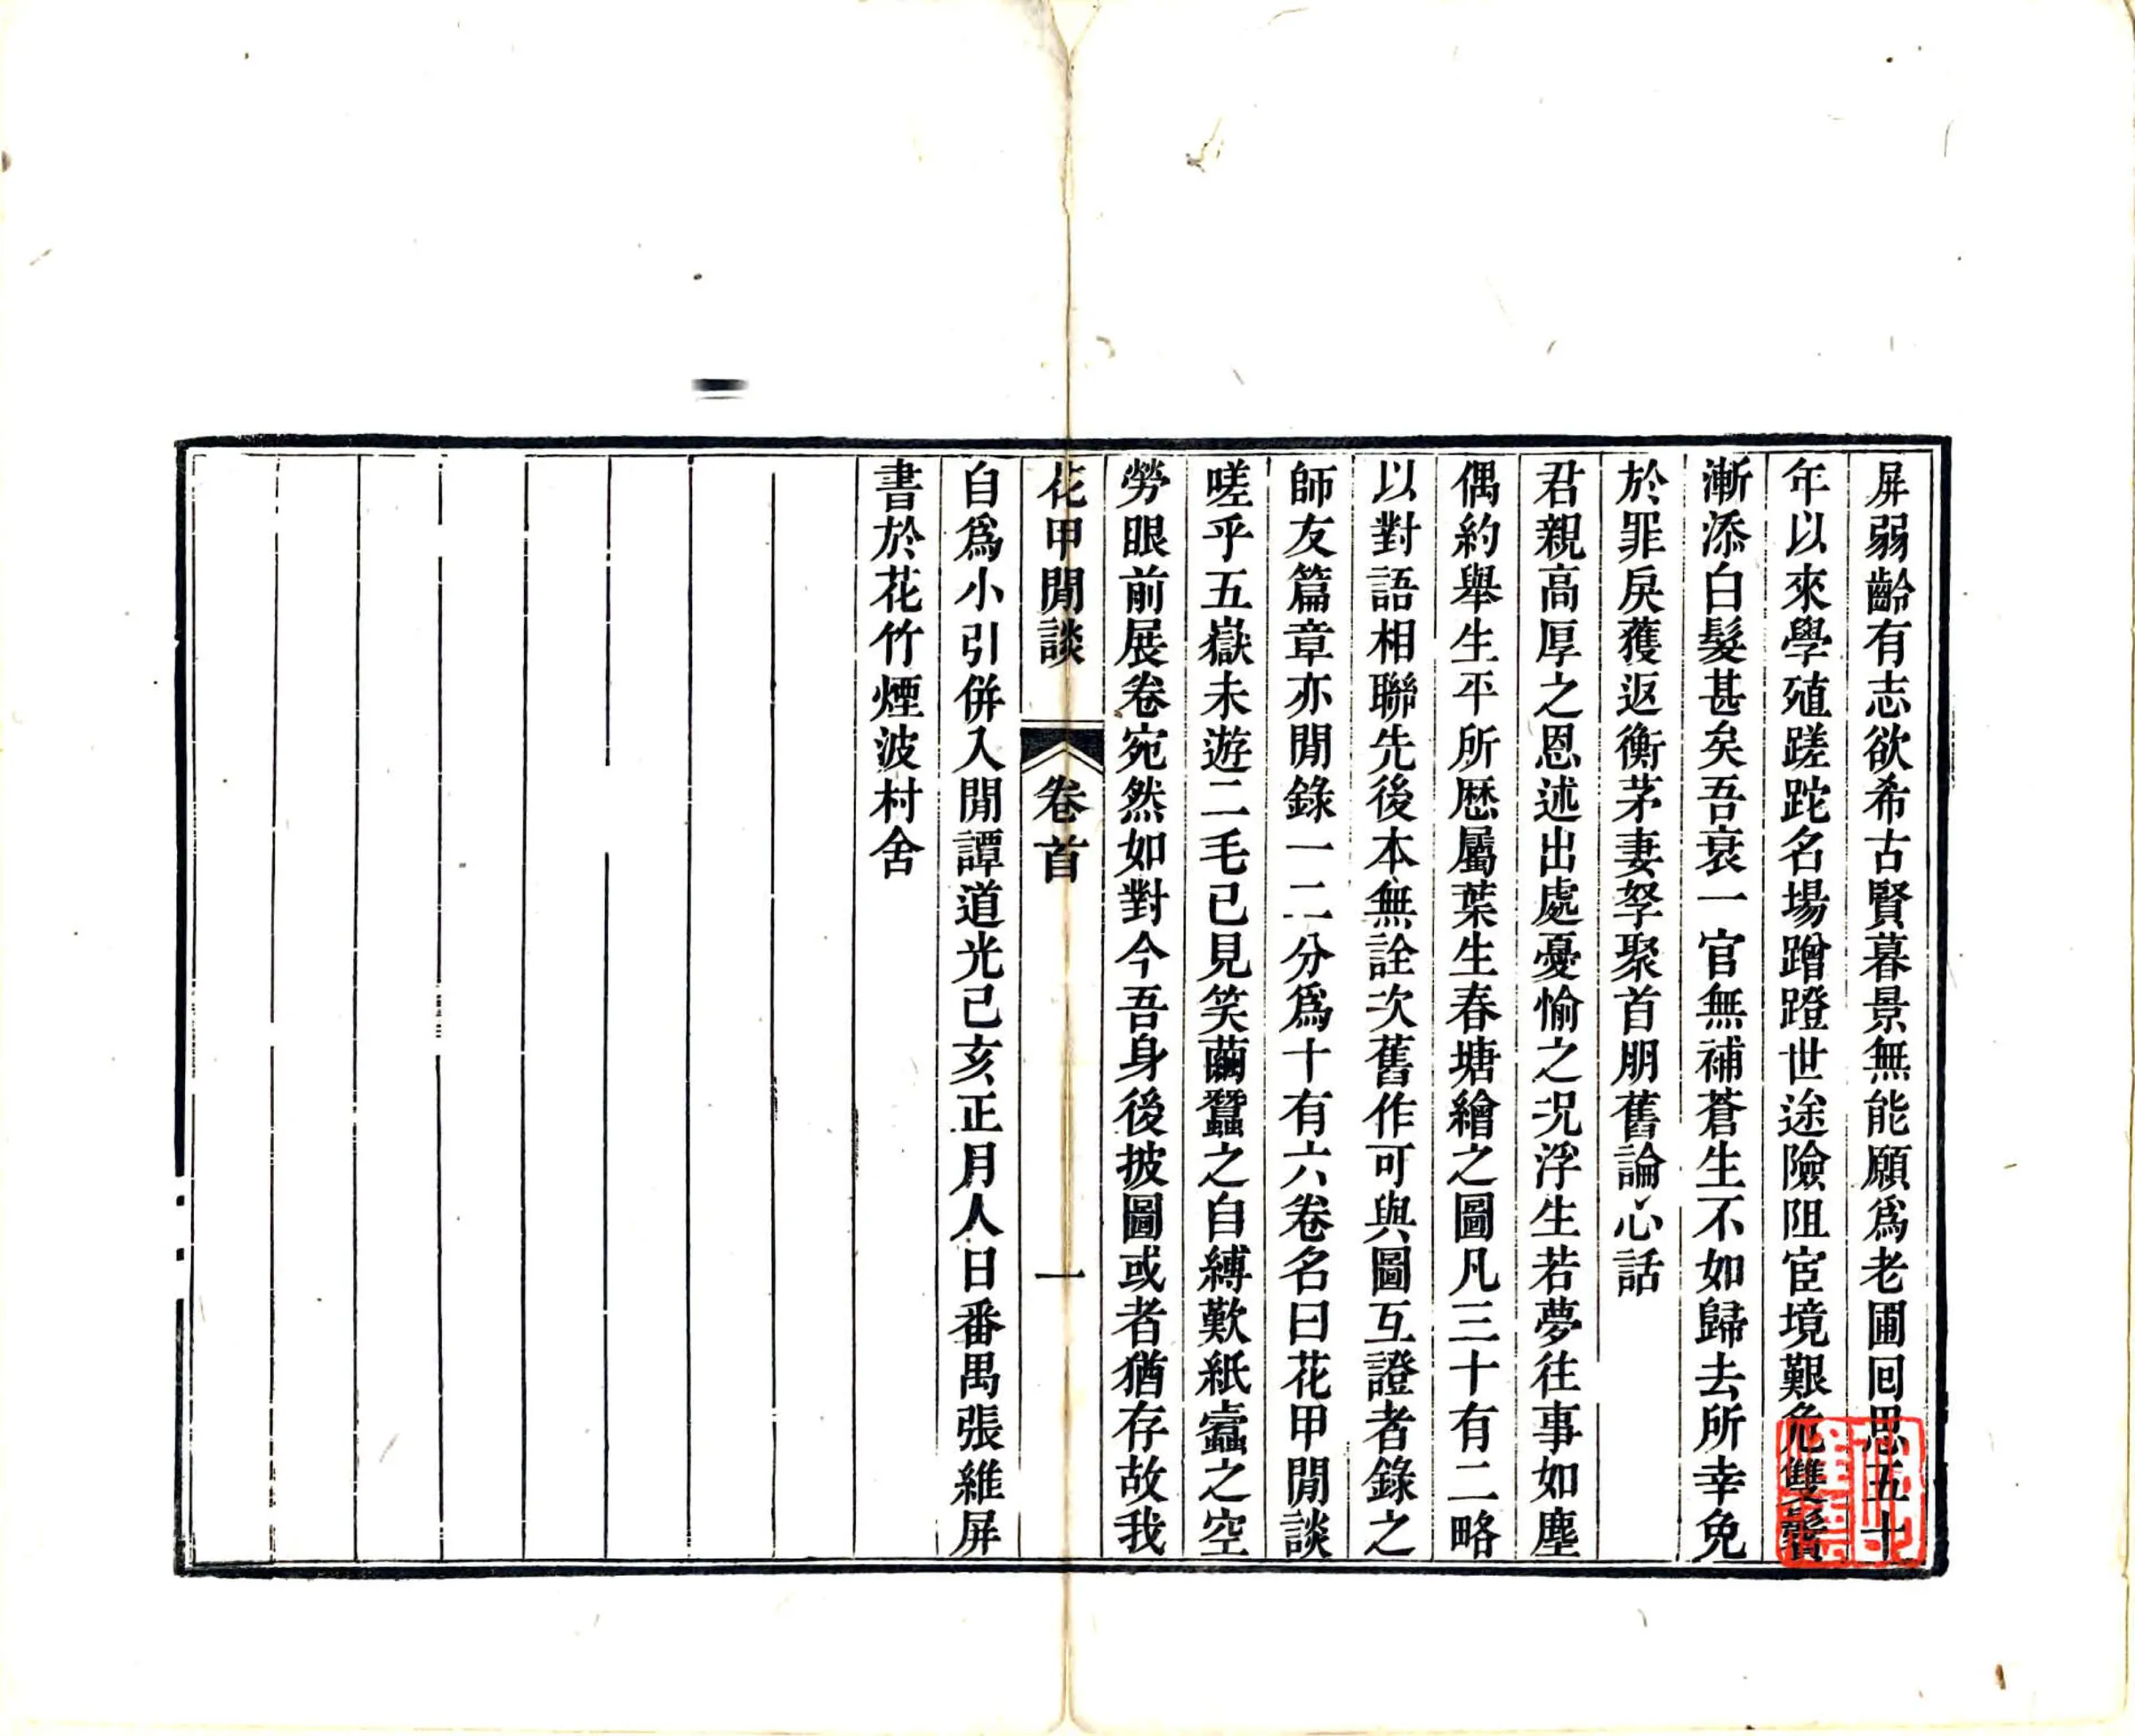 屏弱齡有志欲希古賢暮景無能願爲老圃回思五十
年以來學殖蹉跎名場蹭蹬世途險阻宦境艱危雙鬢
漸添白髮甚矣吾衰一官無補蒼生不如歸去所幸免
於罪戾獲返衡茅妻孥聚首朋舊論心話
君親高厚之恩述出處憂愉之况浮生若夢往事如塵
偶約舉生平所歷屬葉生春塘繪之圖凡三十有二略
以對語相聯先後本無詮次舊作可與圖互證者錄之
師友篇章亦閒錄一二分爲十有六卷名曰花甲閒談
嗟乎五嶽未遊二毛已見笑繭蠶之自縛歎紙蠹之空
勞眼前展卷宛然如對今吾身後披圖或者猶存故我
花甲閒談 卷首 一
自爲小引併入閒譚道光己亥正月人日番禺張維屏
書於花竹煙波村舍